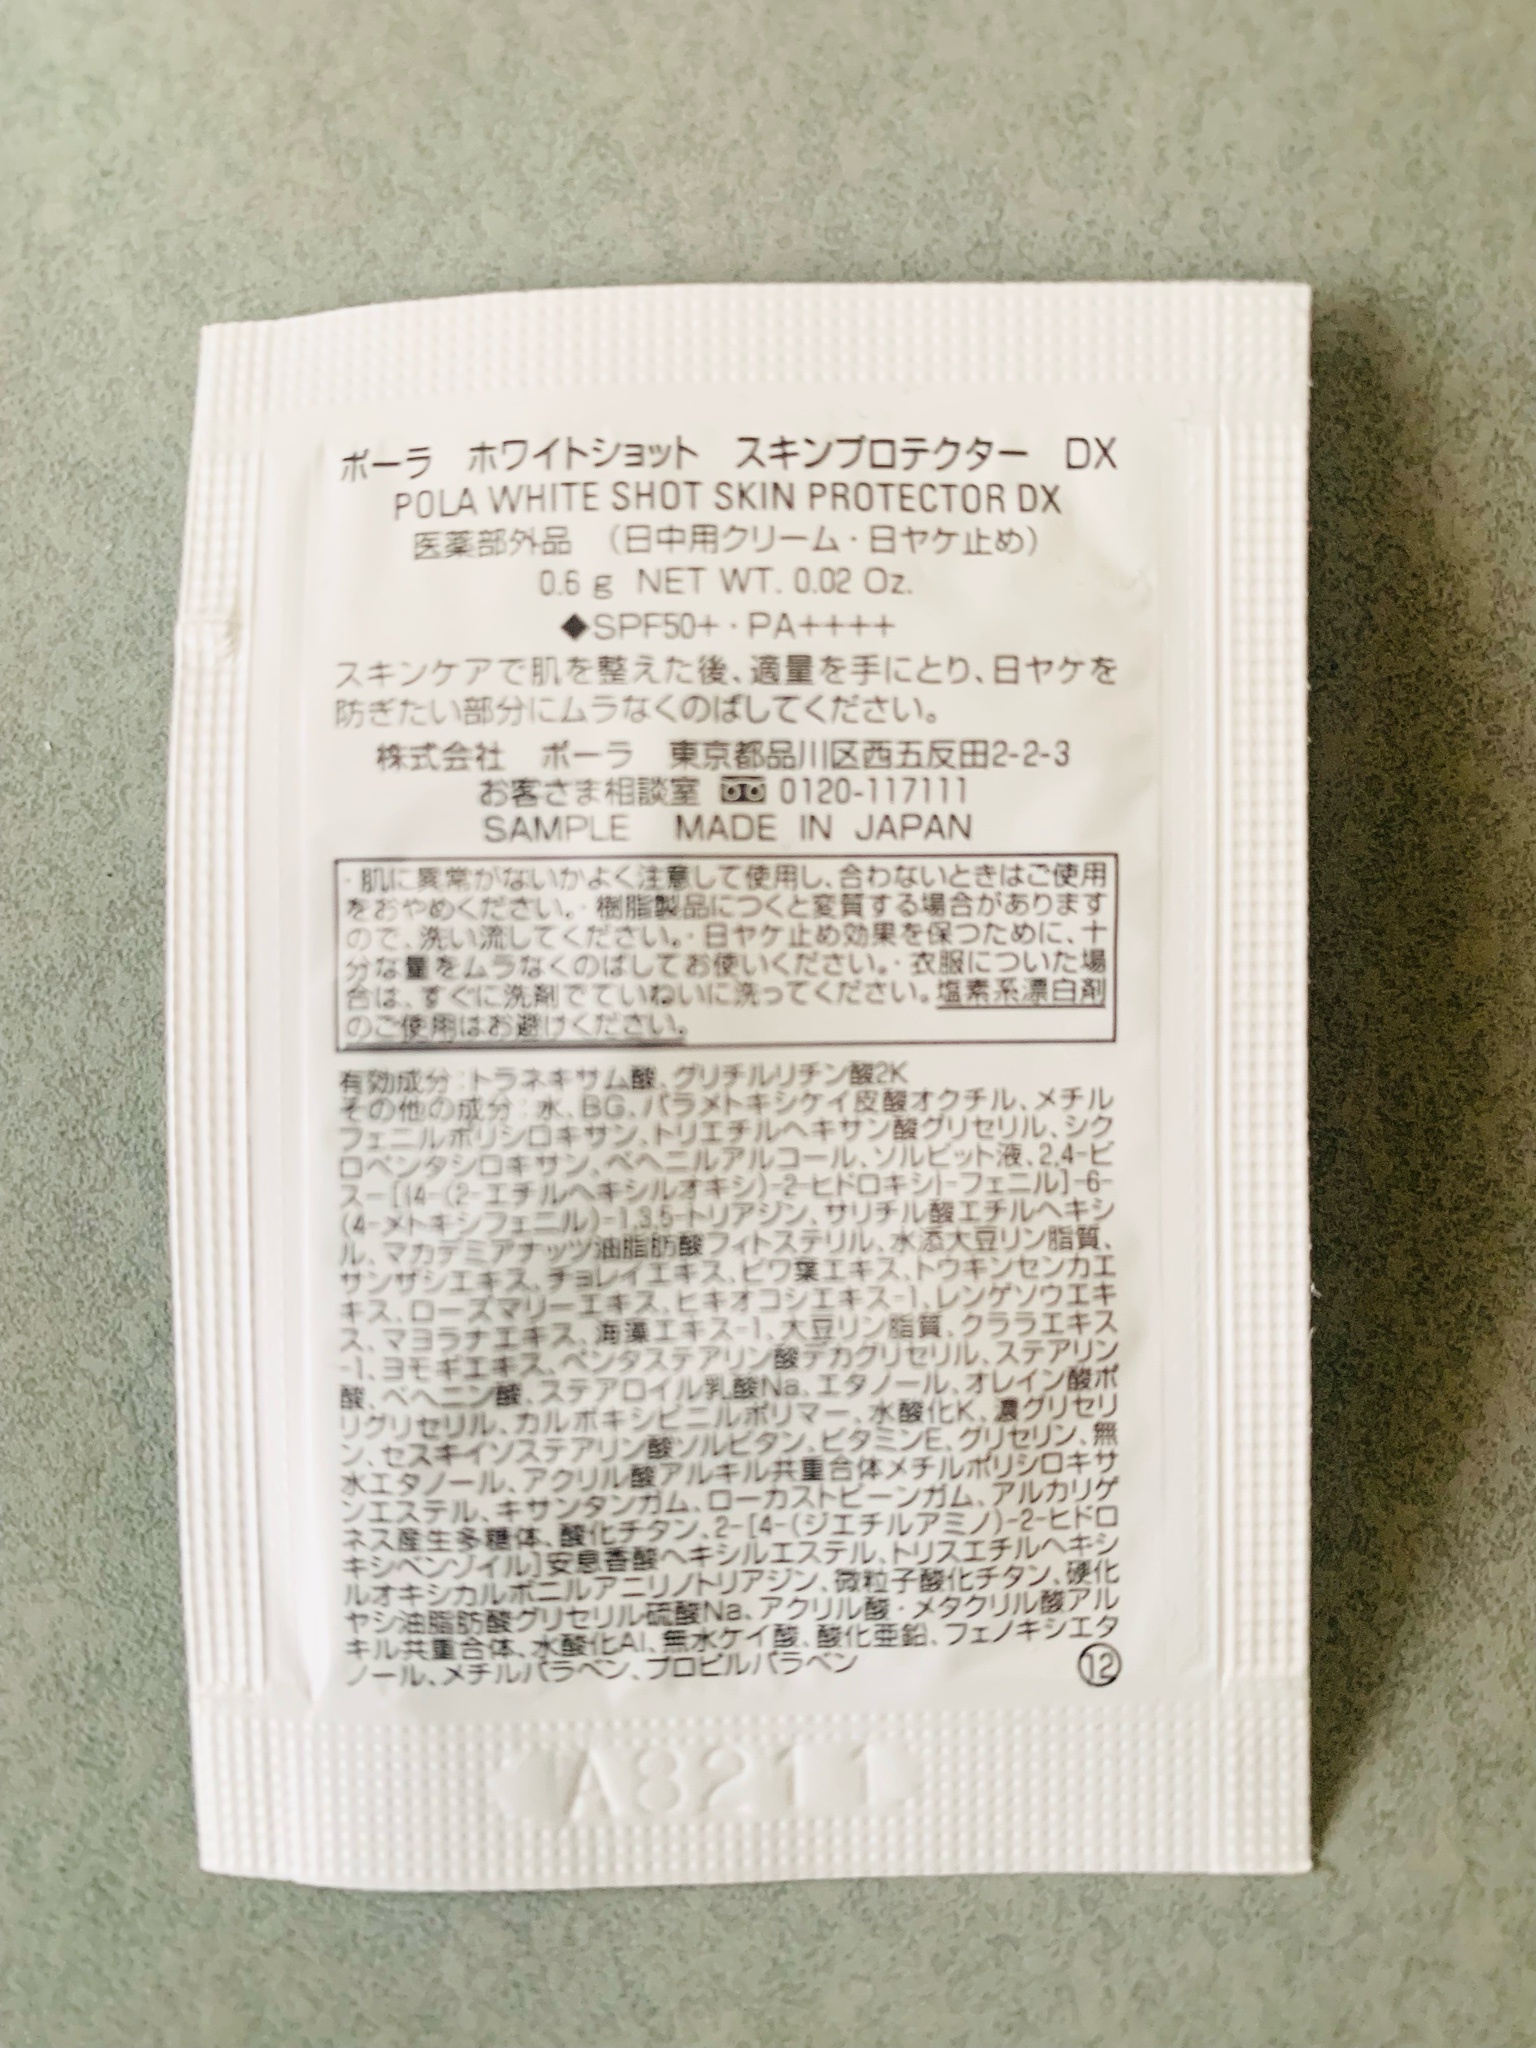 ポーラ ホワイトショット スキンプロテクター DX
POLA WHITE SHOT SKIN PROTECTOR DX
医薬部外品 （日中用クリーム・日ヤケ止め）
0.6 g NET WT. 0.02 Oz.
◆SPF50+・PA++++
スキンケアで肌を整えた後、適量を手にとり、日ヤケを
防ぎたい部分にムラなくのばしてください。
株式会社 ポーラ 東京都品川区西五反田2-2-3
お客さま相談室 0120-117111
SAMPLE MADE IN JAPAN
・肌に異常がないかよく注意して使用し、合わないときはご使用
をおやめください。・樹脂製品につくと変質する場合があります
ので、洗い流してください。・日ヤケ止め効果を保つために、十
分な量をムラなくのばしてお使いください。・衣服についた場
合は、すぐに洗剤でていねいに洗ってください。塩素系漂白剤
のご使用はお避けください。
有効成分：トラネキサム酸、グリチルリチン酸2K
その他の成分：水、BG、パラメトキシケイ皮酸オクチル、メチル
フェニルポリシロキサン、トリエチルヘキサン酸グリセリル、シク
ロペンタシロキサン、ベヘニルアルコール、ソルビット液、2,4-ビ
ス-[{4-(2-エチルヘキシルオキシ)-2-ヒドロキシ}-フェニル]-6-
(4-メトキシフェニル)-1,3,5-トリアジン、サリチル酸エチルヘキシ
ル、マカデミアナッツ油脂肪酸フィトステリル、水添大豆リン脂質、
サンザシエキス、チョレイエキス、ビワ葉エキス、トウキンセンカエ
キス、ローズマリーエキス、ヒキオコシエキス-1、レンゲソウエキ
ス、マヨラナエキス、海藻エキス-1、大豆リン脂質、クララエキス
-1、ヨモギエキス、ペンタステアリン酸デカグリセリル、ステアリン
酸、ベヘニン酸、ステアロイル乳酸Na、エタノール、オレイン酸ポ
リグリセリル、カルボキシビニルポリマー、水酸化K、濃グリセリ
ン、セスキイソステアリン酸ソルビタン、ビタミンE、グリセリン、無
水エタノール、アクリル酸アルキル共重合体メチルポリシロキサ
ンエステル、キサンタンガム、ローカストビーンガム、アルカリゲ
ネス産生多糖体、酸化チタン、2-[4-(ジエチルアミノ)-2-ヒドロ
キシベンゾイル]安息香酸ヘキシルエステル、トリスエチルヘキシ
ルオキシカルボニルアニリノトリアジン、微粒子酸化チタン、硬化
ヤシ油脂肪酸グリセリル硫酸Na、アクリル酸・メタクリル酸アル
キル共重合体、水酸化Al、無水ケイ酸、酸化亜鉛、フェノキシエタ
ノール、メチルパラベン、プロピルパラベン ⑫